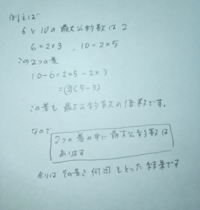 例えば
6と10の最大公約数は2
6=2×3、10=2×5
この2つの差
10-6=2×5-2×3
=2(5-3)
この差も最大公約数の倍数です。
なので
2つの差の中に最大公約数は
あります